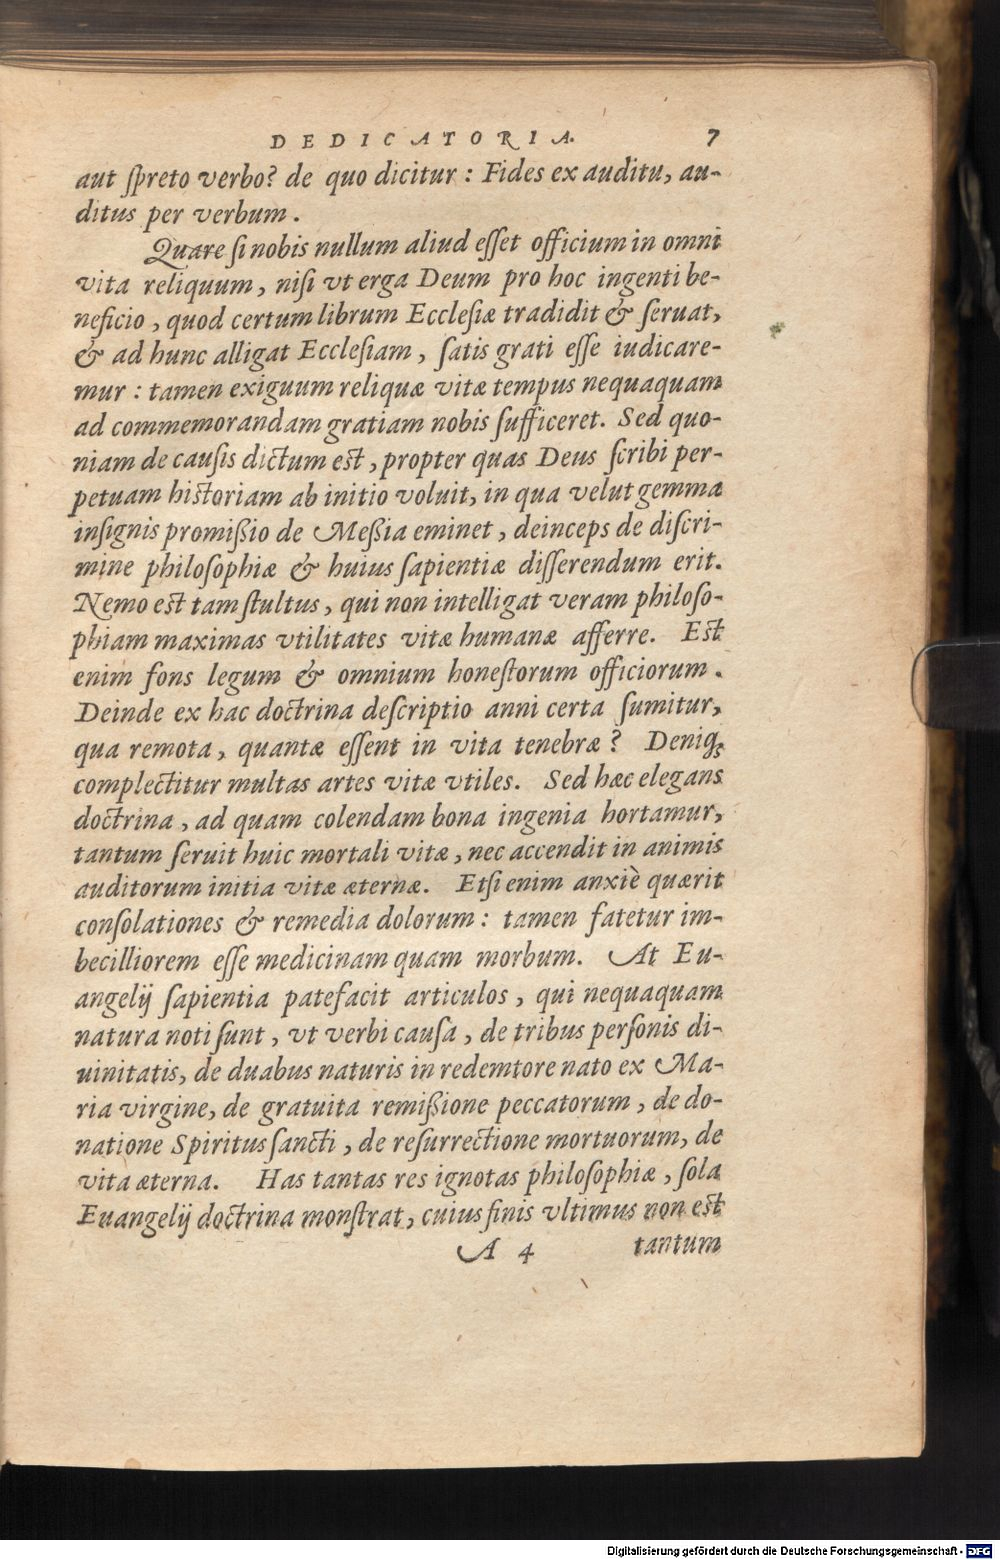 DEDICATORIA. 7
aut ſpreto verbo? de quo dicitur : Fides ex auditu, au-
ditus per verbum .
Quare ſi nobis nullum aliud eſſet officium in omni
vita reliquum , niſi vt erga Deum pro hoc ingenti be-
neficio , quod certum librum Eccleſiæ tradidit & ſeruat,
& ad hunc alligat Eccleſiam , ſatis grati eſſe iudicare-
mur : tamen exiguum reliquæ vitæ tempus nequaquam
ad commemorandam gratiam nobis ſufficeret. Sed quo-
niam de cauſis dictum est , propter quas Deus ſcribi per-
petuam historiam ab initio voluit, in qua velut gemma
inſignis promißio de Meßia eminet , deinceps de diſcri-
mine philoſophiæ & huius ſapientiæ diſſerendum erit.
Nemo est tam ſtultus , qui non intelligat veram philoſo-
phiam maximas vtilitates vitæ humanæ afferre. Est
enim fons legum & omnium honeſtorum officiorum .
Deinde ex hac doctrina deſcriptio anni certa ſumitur,
qua remota , quantæ eſſent in vita tenebræ ? Deniq;
complectitur multas artes vitæ vtiles. Sed hæc elegans
doctrina , ad quam colendam bona ingenia hortamur,
tantum ſeruit huic mortali vitæ , nec accendit in animis
auditorum initia vitæ æternæ. Etſi enim anxiè quærit
conſolationes & remedia dolorum : tamen fatetur im-
becilliorem eſſe medicinam quam morbum. At Eu-
angelij ſapientia patefacit articulos , qui nequaquam
natura noti ſunt , vt verbi cauſa , de tribus perſonis di-
uinitatis, de duabus naturis in redemtore nato ex Ma-
ria virgine, de gratuita remißione peccatorum , de do-
natione Spiritus ſancti , de reſurrectione mortuorum, de
vita æterna. Has tantas res ignotas philoſophiæ , ſola
Euangelij doctrina monſtrat , cuius finis vltimus non est
A 4 tantum
Digitalisierung gefördert durch die Deutsche Forschungsgemeinschaft - DFG